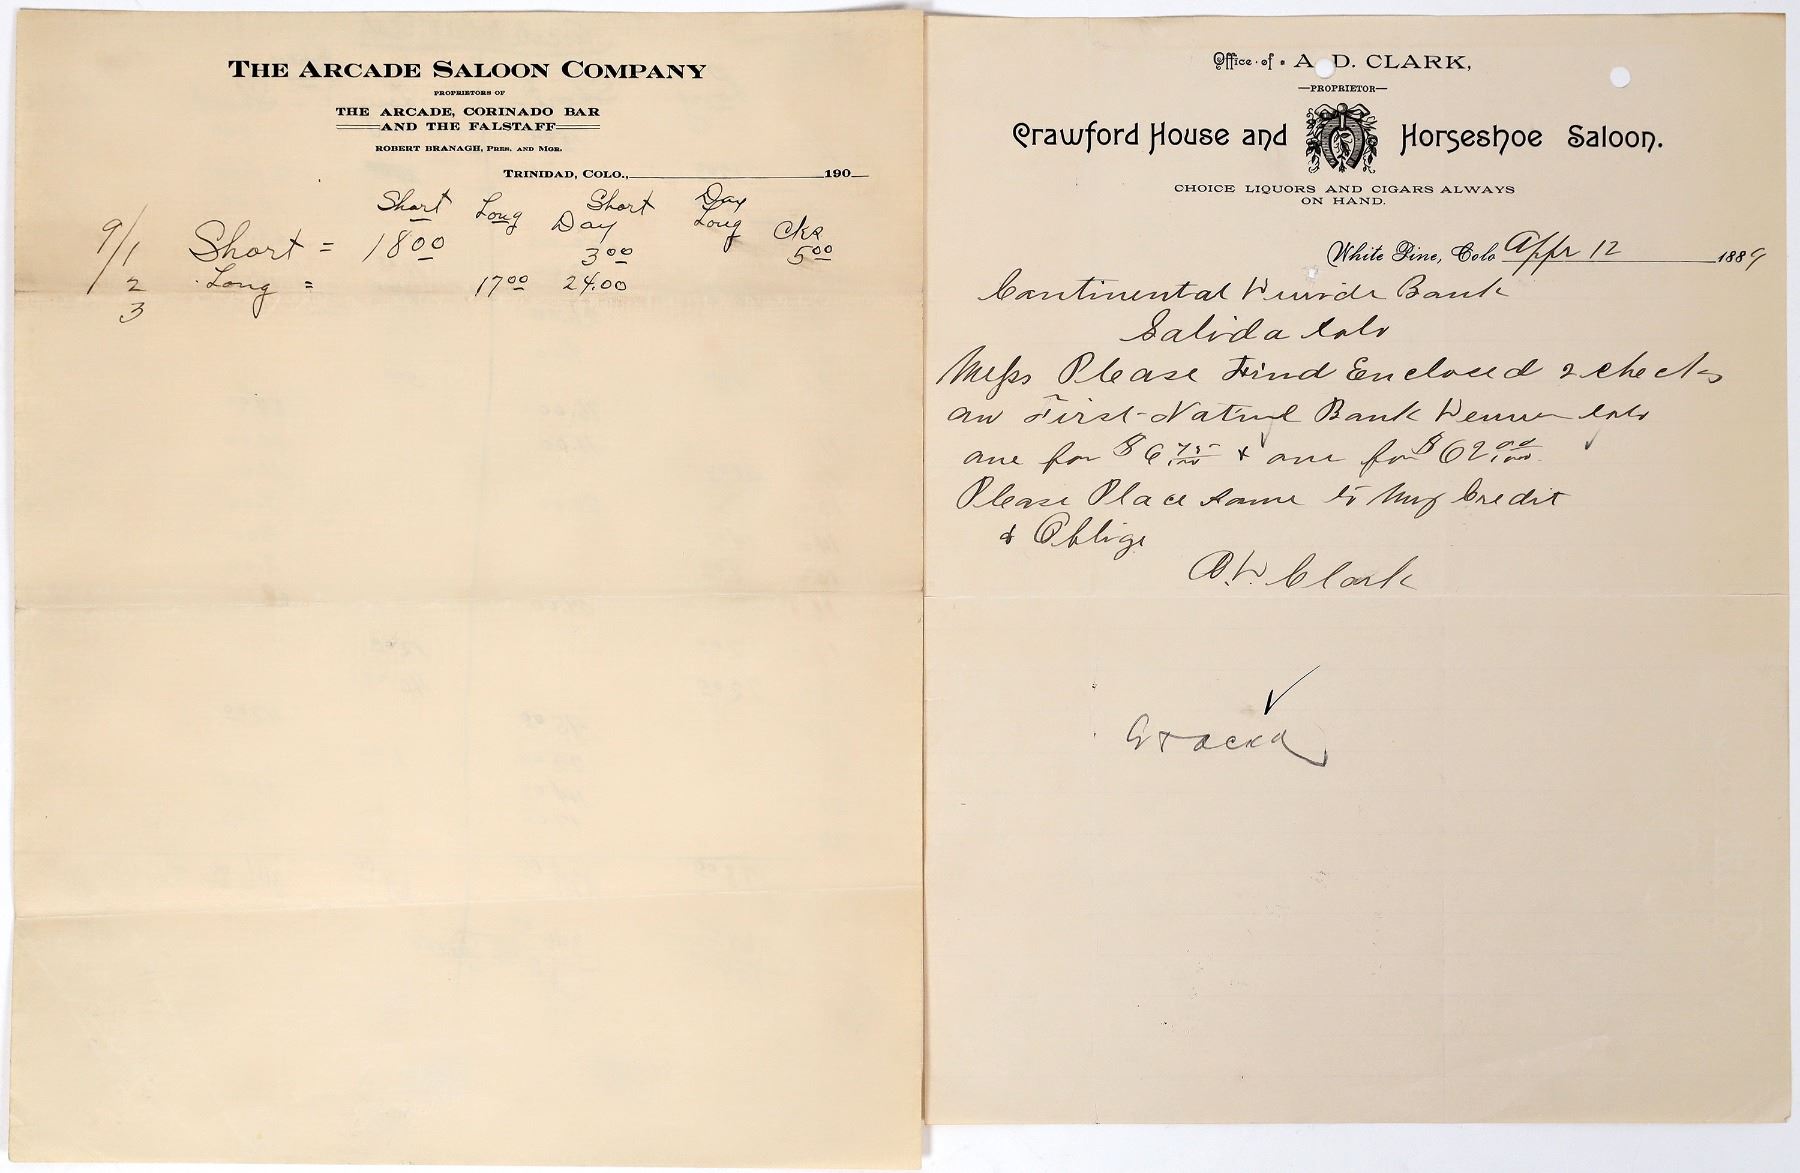 THE ARCADE SALOON COMPANY
PROPRIETORS OF
THE ARCADE, CORINADO BAR
AND THE FALSTAFF
ROBERT BRANAGH, PRES. AND MGR.
TRINIDAD, COLO., 190
Short Long Short Day Day Long Cks
9/1 Short = 18 00 3 00 5 00
2 Long = 17 00 24.00
3
Office of A. D. CLARK,
PROPRIETOR
Crawford House and Horseshoe Saloon.
CHOICE LIQUORS AND CIGARS ALWAYS
ON HAND.
White Pine, Colo Appr 12 1889
Continental Bank
Salida Colo
Mess Please Find Enclosed 2 checks
on First Bank Colo
one for $6 75/100 & one for $62 00/100
Please Place same to My Credit
& Oblige
A.D. Clark